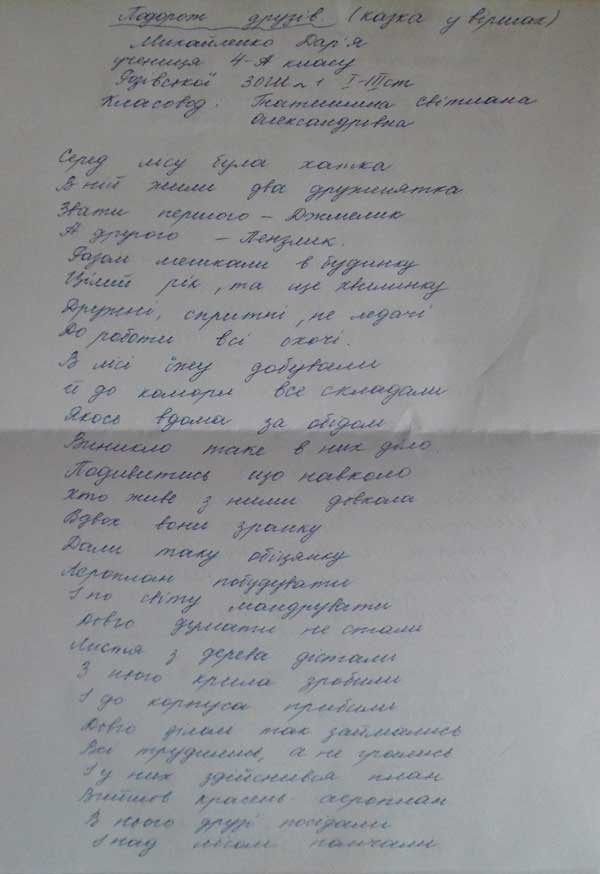 Подорож друзів (казка у віршах)
Михайленко Дар'я
учениця 4-А класу
Розівської ЗОШ №1 І-ІІІст
Класовод: Світлана
Олександрівна
Серед лісу була хатка
В ній жили два дружнятка
Звати першого - Джмелик
А другого - Пензлик.
Разом мешкали в будинку
Цілий рік, та ще хвилинку
Дружні, спритні, не ледачі
До роботи всі охочі.
В лісі їжу добували
Й до комори все складали
Якось вдома за обідом
Виникло таке в них діло.
Подивитись що навколо
Хто живе з ними довкола
Вдвох вони зранку
Дали таку обіцянку
Аероплан побудувати
І по світу мандрувати
Довго думати не стали
Листя з дерева дістали
З нього крила зробили
І до корпуса прибили
Довго ділом так займались
Всі трудились, а не грались
І у них здійснився план
Вийшов красень аероплан
В нього друзі посідали
І над лісом помчали